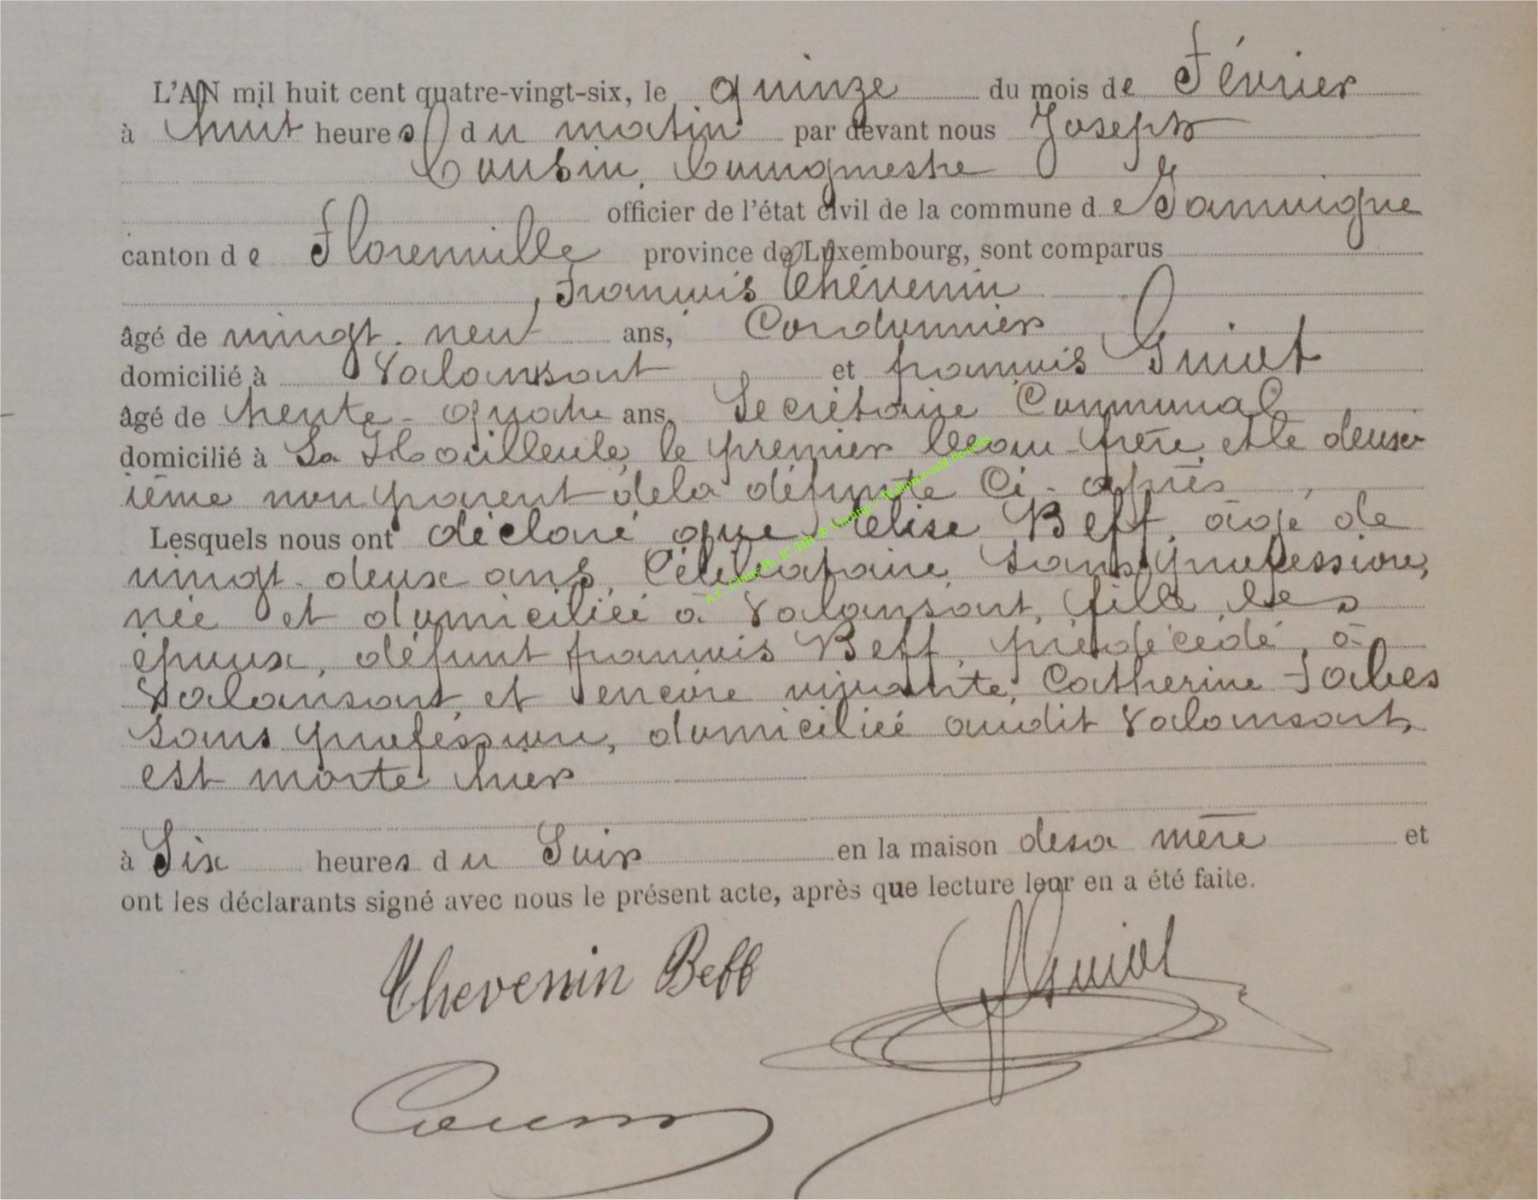 L'AN mil huit cent quatre-vingt-six, le quinze du mois de Février
à huit heures du matin par devant nous Joseph
Cousin, bourgmestre
officier de l'état civil de la commune de Jamoigne
canton de Florenville province de Luxembourg, sont comparus
François Thévenin
âgé de vingt-neuf ans, Cordonnier
domicilié à Valansart et françois Guiot
âgé de trente-quatre ans, Secrétaire Communal
domicilié à La Hailleule, le premier beau-frère, et le deux-
ième non parent de la défunte Ci-après
Lesquels nous ont déclaré que Elise Beff, âgé de
vingt-deux ans, Célibataire, sans profession,
née et domiciliée à Valansart, fille des
époux, défunt françois Beff, prédécédé, à
Valansart, et encore vivante, Catherine
sans profession, domiciliée audit Valansart,
est morte hier
à Six heures du Soir en la maison de sa mère et
ont les déclarants signé avec nous le présent acte, après que lecture leur en a été faite.
Thevenin Beff Guiot
Cousin